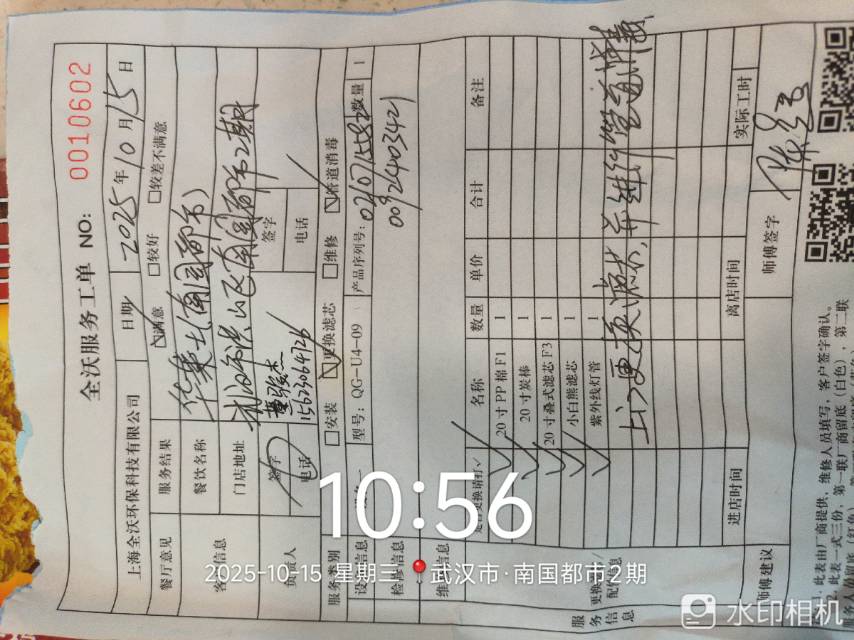 全沃服务工单 NO: 0010602
上海全沃环保科技有限公司 日期 2025年10月15日
餐厅意见 服务结果 满意 较好 较差不满意
客户信息 餐饮名称 华莱士(南国都市)
门店地址 武汉市洪山区南国都市2期
负责人 签字 董骏杰 签字
电话 15623064726 电话
服务类别 安装 更换滤芯 维修 管道消毒
型号: QG-U4-09 产品序列号: 数量 1
检修信息 0092403421
名称 数量 单价 合计 备注
20寸PP棉F1 1
20寸炭棒 1
20寸叠式滤芯F3 1
小白熊滤芯 1
紫外线灯管 1
上门更换滤芯,并进行管道消毒
服务信息
进店时间 离店时间 实际工时
师傅建议 师傅签字
1、此表由厂商提供,维修人员填写,客户签字确认。
2、此表一式三份,第一联厂商留底(白色),第二联
10:56
2025-10-15 星期三 武汉市·南国都市2期
水印相机